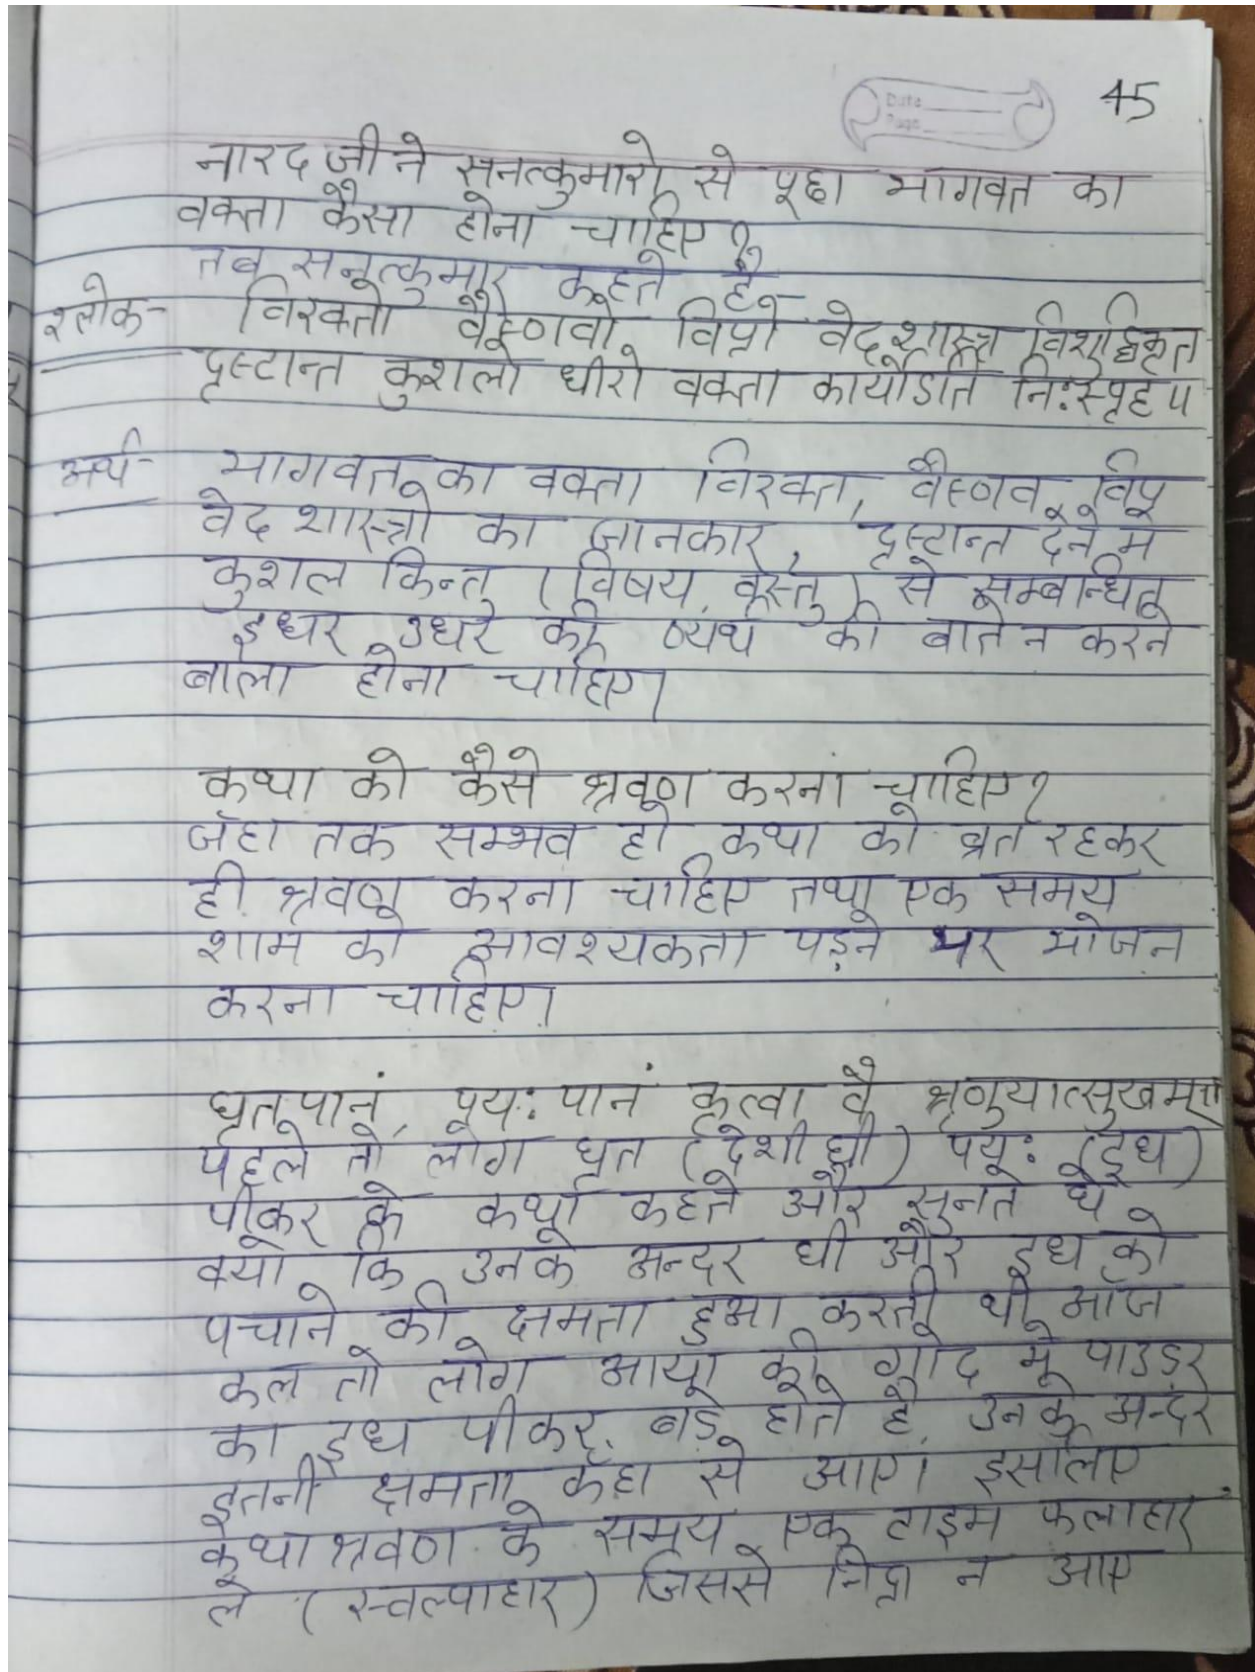 45
Date
Page
नारद जी ने सनत्कुमारो से पूछा भागवत का
वक्ता कैसा होना चाहिए?
तब सनत्कुमार कहते है-
श्लोक- विरक्तो वैष्णवो विप्रो वेदशास्त्र विशुद्धिकृत
दृष्टान्त कुशलो धीरो वक्ता कार्योऽति निःस्पृह॥
अर्थ- भागवत का वक्ता विरक्त, वैष्णव, विप्र
वेद शास्त्रो का जानकार, दृष्टान्त देने में
कुशल किन्तु (विषय, वस्तु) से सम्बन्धित
इधर उधर की व्यर्थ की बाते न करने
बाला होना चाहिए।
कथा को कैसे श्रवण करना चाहिए?
जँहा तक सम्भव हो कथा को ब्रत रहकर
ही श्रवण करना चाहिए तथा एक समय
शाम को आवश्यकता पड़ने पर भोजन
करना चाहिए।
घ्रतपानं, पयः पानं कृत्वा वै श्रणुयात्सुखम्॥
पहले तो लोग घ्रत (देशी घी) पयः (दूध)
पीकर के कथा कहते और सुनते थे
क्यो कि उनके अन्दर घी और दूध को
पचाने की क्षमता हुआ करती थी आज
कल तो लोग आया की गोद में पाउडर
का दूध पीकर बड़े होते है, उनके अन्दर
इतनी क्षमता कहा से आए। इसलिए
कथा श्रवण के समय एक टाइम फलाहार
ले (स्वल्पाहार) जिससे निद्रा न आए